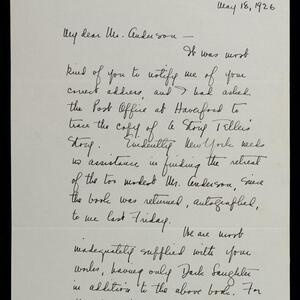 May 18, 1926
My dear Mr. Anderson —
It was most
kind of you to notify me of your
correct address, and I had asked
the Post Office at Haverford to
trace the copy of A Story Teller's
Story. Evidently New York needs
no assistance in finding the retreat
of the too modest Mr. Anderson, since
the book was returned, autographed,
to me last Friday.
We are most
inadequately supplied with your
works, having only Dark Laughter
in addition to the above book. For